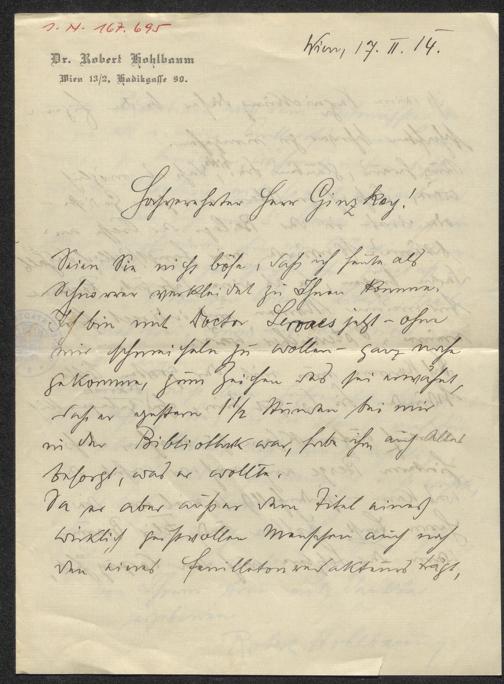 I. N. 167.695
Wien, 17. II. 14.
Dr. Robert Hohlbaum
Wien 13/2, Hadikgasse 90.
Hochverehrter Herr Ginzkey!
Seien Sie nicht böse, daß ich heute als
Schnorrer verkleidet zu Ihnen komme.
Ich bin mit Doctor Servaes jetzt – ohne
mir schmeicheln zu wollen – ganz nahe
gekommen, zum Zeichen das sei erwähnt,
daß er gestern 1 1/2 Stunden bei mir
in der Bibliothek war, habe ihm auch Alles
besorgt, was er wollte.
Da er aber außer dem Titel eines
wirklich geistvollen Menschen auch noch
den eines Feuilletonredakteurs trägt,